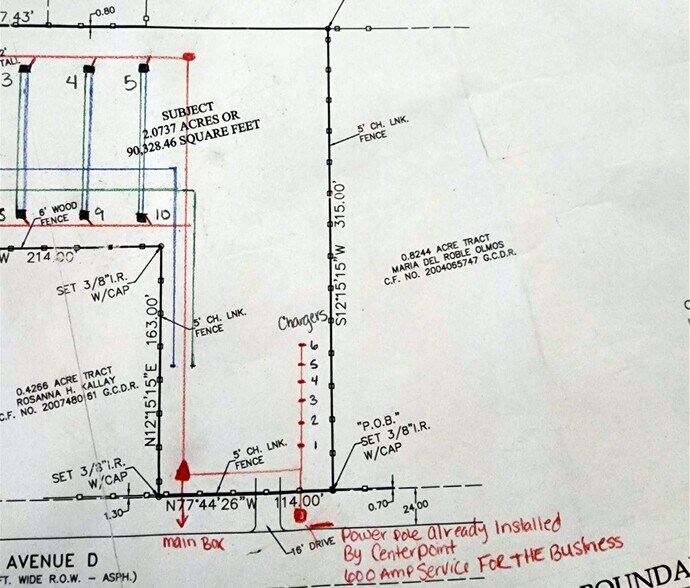 7.43'
0.80
2'
TALL
3
4
5
SUBJECT
2.0737 ACRES OR
90,328.46 SQUARE FEET
5' CH. LNK.
FENCE
6' WOOD
FENCE
9
10
W 214.00'
SET 3/8"I.R.
W/CAP
S12°15'15"W 315.00'
0.8244 ACRE TRACT
MARIA DEL ROBLE OLMOS
C.F. NO. 2004065747 G.C.D.R.
5' CH. LNK.
FENCE
N12°15'15"E 163.00'
Chargers
6
5
4
3
2
1
0.4266 ACRE TRACT
ROSANNA H. KALLAY
C.F. NO. 2007480 61 G.C.D.R.
"P.O.B."
SET 3/8"I.R.
W/CAP
5' CH. LNK.
FENCE
SET 3/8"I.R.
W/CAP
1.30
N77°44'26"W 114.00'
0.70
24.00
main Box
15' DRIVE
Power pole already Installed
By CenterPoint
600 Amp Service FOR THE Business
AVENUE D
FT. WIDE R.O.W. - ASPH.)
BOUNDA